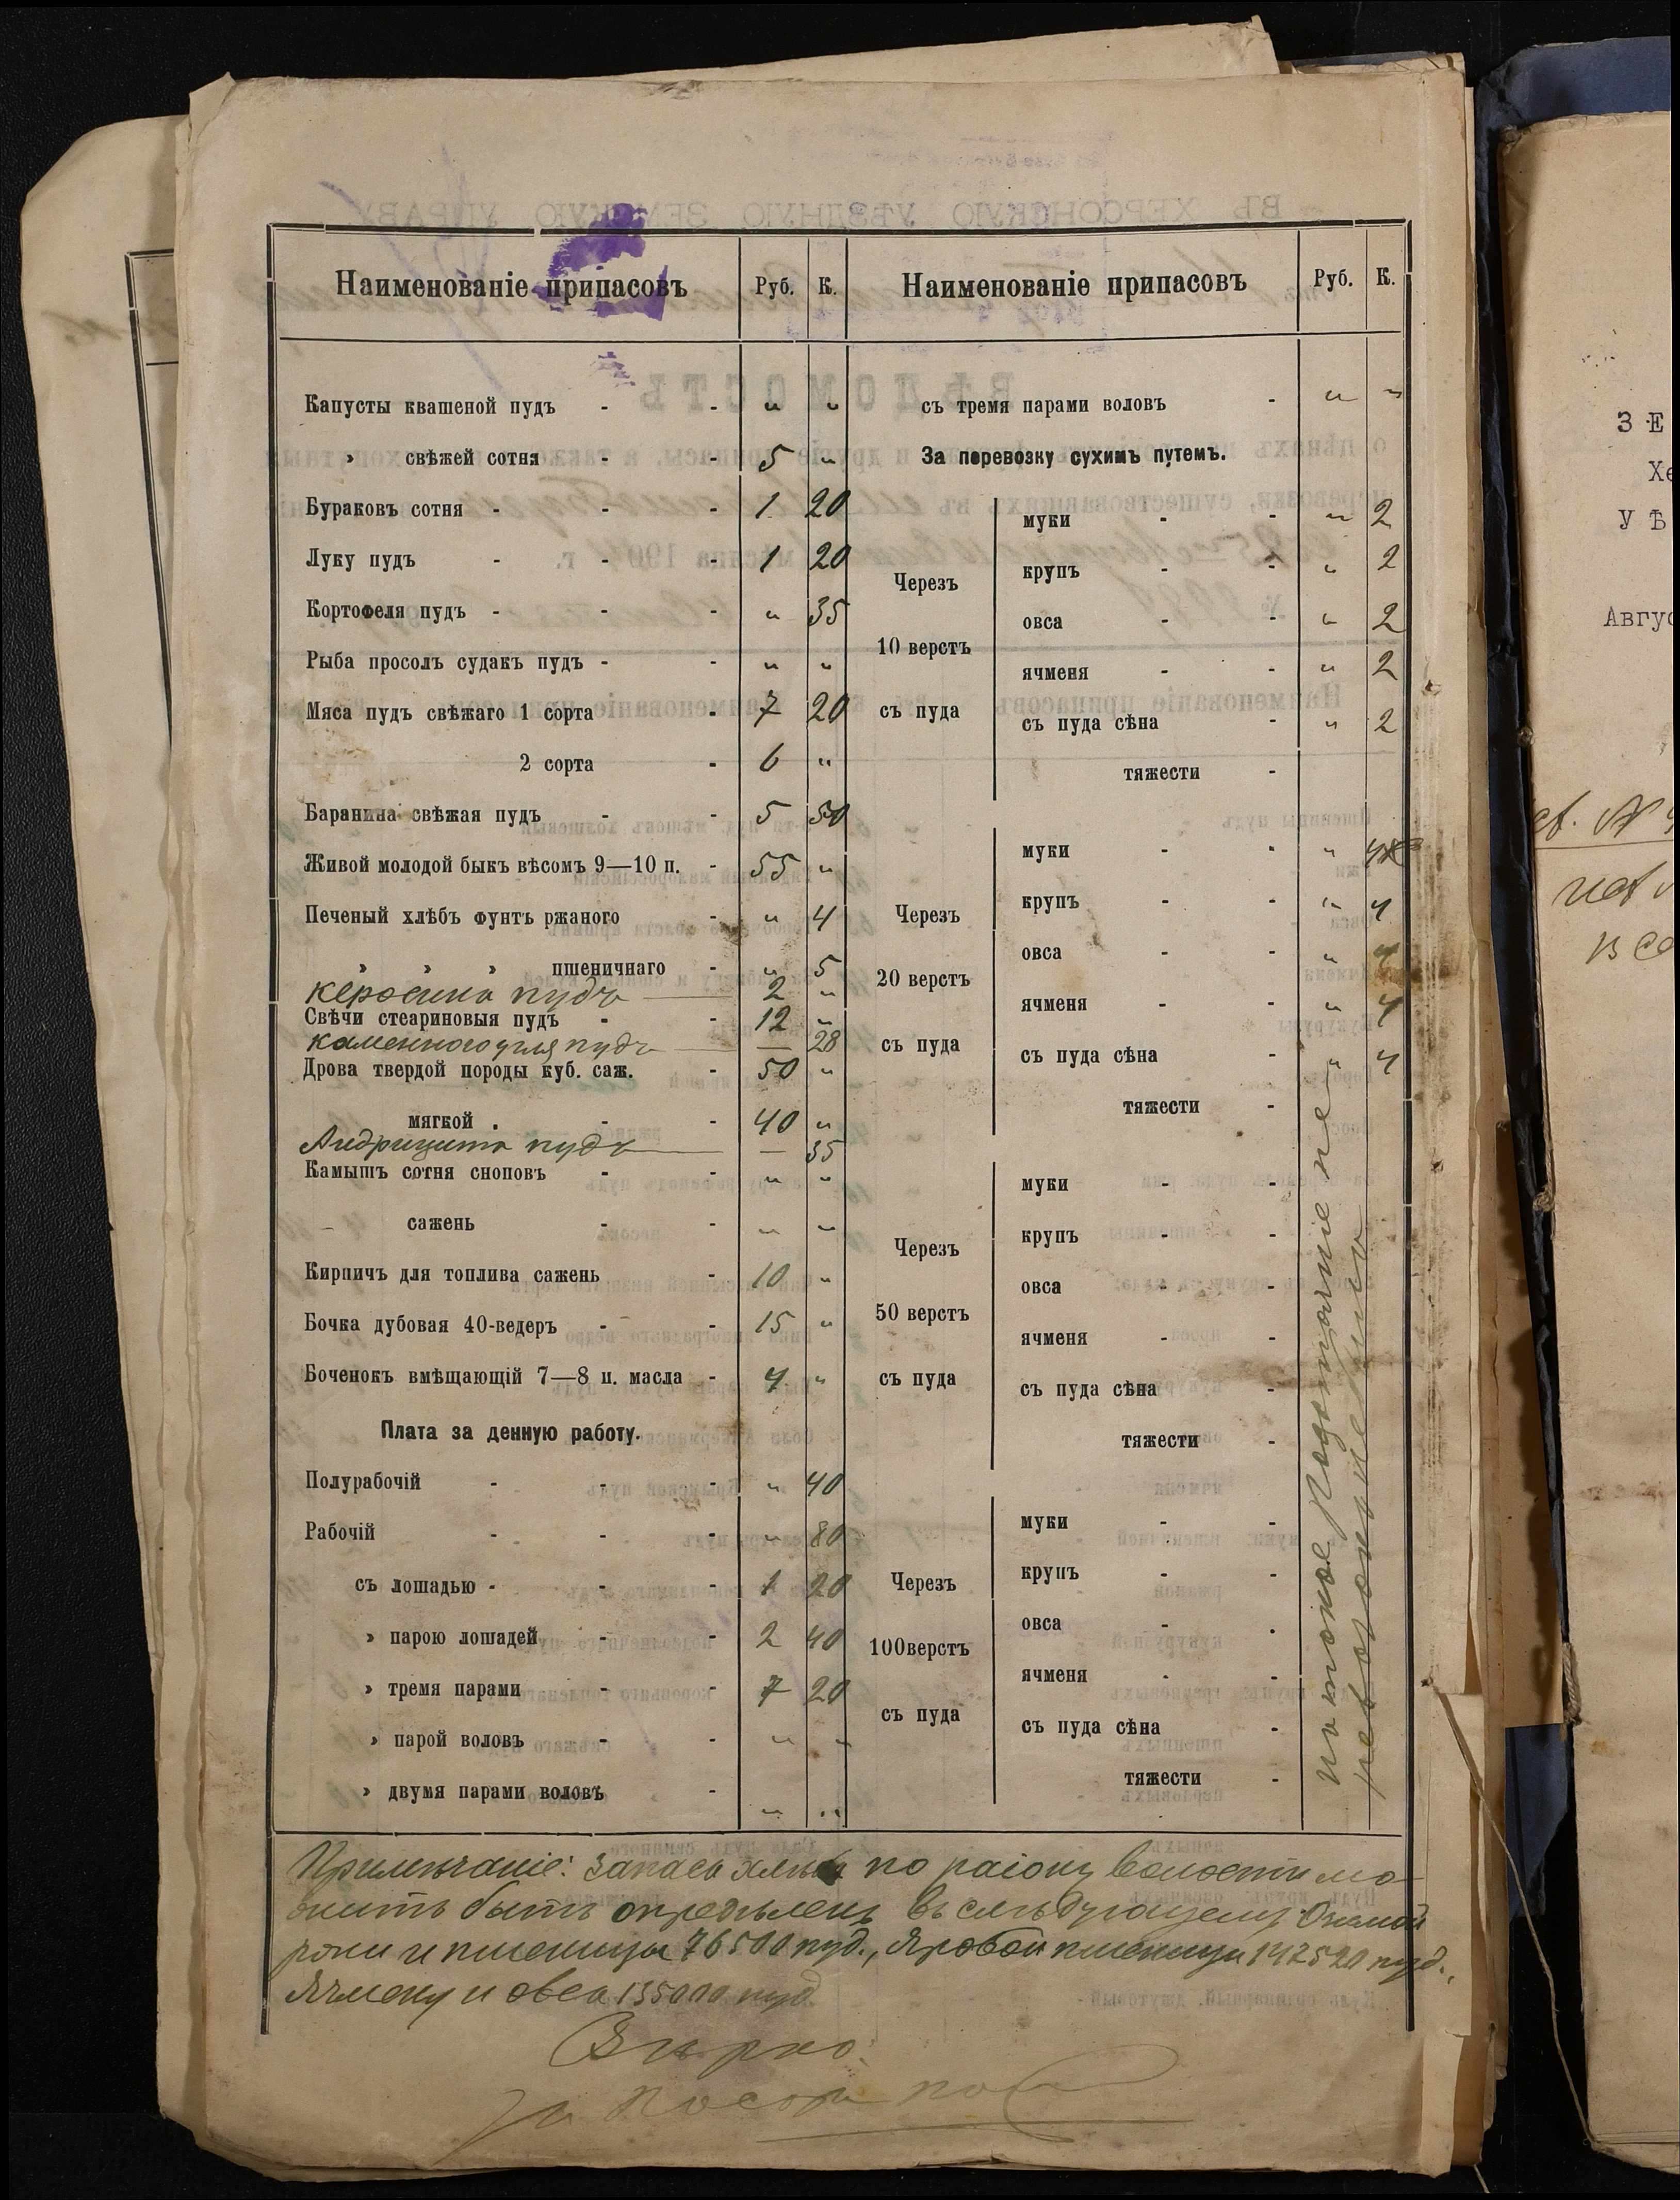 Наименованіе припасовъ Руб. К.
Капусты квашеной пудъ - - „ „
» свѣжей сотня - - 5 „
Бураковъ сотня - - - 1 20
Луку пудъ - - - 1 20
Кортофеля пудъ - - - „ 35
Рыба просолъ судакъ пудъ - - „ „
Мяса пудъ свѣжаго 1 сорта - 7 20
2 сорта - 6 „
Баранина свѣжая пудъ - - 5 50
Живой молодой быкъ вѣсомъ 9—10 п. - 55 „
Печеный хлѣбъ фунтъ ржаного - „ 4
» » » пшеничнаго - „ 5
Керосина пудъ — 2 „
Свѣчи стеариновыя пудъ - - 12 „
каменного угля пудъ — — 28
Дрова твердой породы куб. саж. - 50 „
мягкой . - - 40 „
пудъ — — 35
Камышъ сотня сноповъ - - „ „
сажень - - „ „
Кирпичъ для топлива сажень - 10 „
Бочка дубовая 40-ведеръ - - 15 „
Боченокъ вмѣщающій 7—8 п. масла - 4 „
Плата за денную работу.
Полурабочій - - - „ 40
Рабочій - - - „ 80
съ лошадью - - - 1 20
» парою лошадей - - 2 40
» тремя парами - - 7 20
» парой воловъ - - „ „
» двумя парами воловъ - „ „
Наименованіе припасовъ Руб. К.
съ тремя парами воловъ - „ „
За перевозку сухимъ путемъ.
Черезъ
10 верстъ
съ пуда
муки - - „ 2
крупъ - - „ 2
овса - - „ 2
ячменя - - „ 2
съ пуда сѣна - „ 2
тяжести -
Черезъ
20 верстъ
съ пуда
муки - - „ 4
крупъ - - „ 4
овса - - „ 4
ячменя - - „ 4
съ пуда сѣна - „ 4
тяжести -
Черезъ
50 верстъ
съ пуда
муки - -
крупъ - -
овса - -
ячменя - -
съ пуда сѣна -
тяжести -
Черезъ
100верстъ
съ пуда
муки - -
крупъ - -
овса - .
ячменя - -
съ пуда сѣна -
тяжести -
не
Примѣчаніе: запасъ хлѣба по раіону волости мо-
жить быть опредѣленъ въ слѣдующему: Озимой
ржи и пшеницы 76500 пуд., Яровой пшеницы 142520 пуд.,
Ячменя и овса 135000 пуд.
Вѣрно:
За
ЗЕ
Хе
УѢ
Авгус